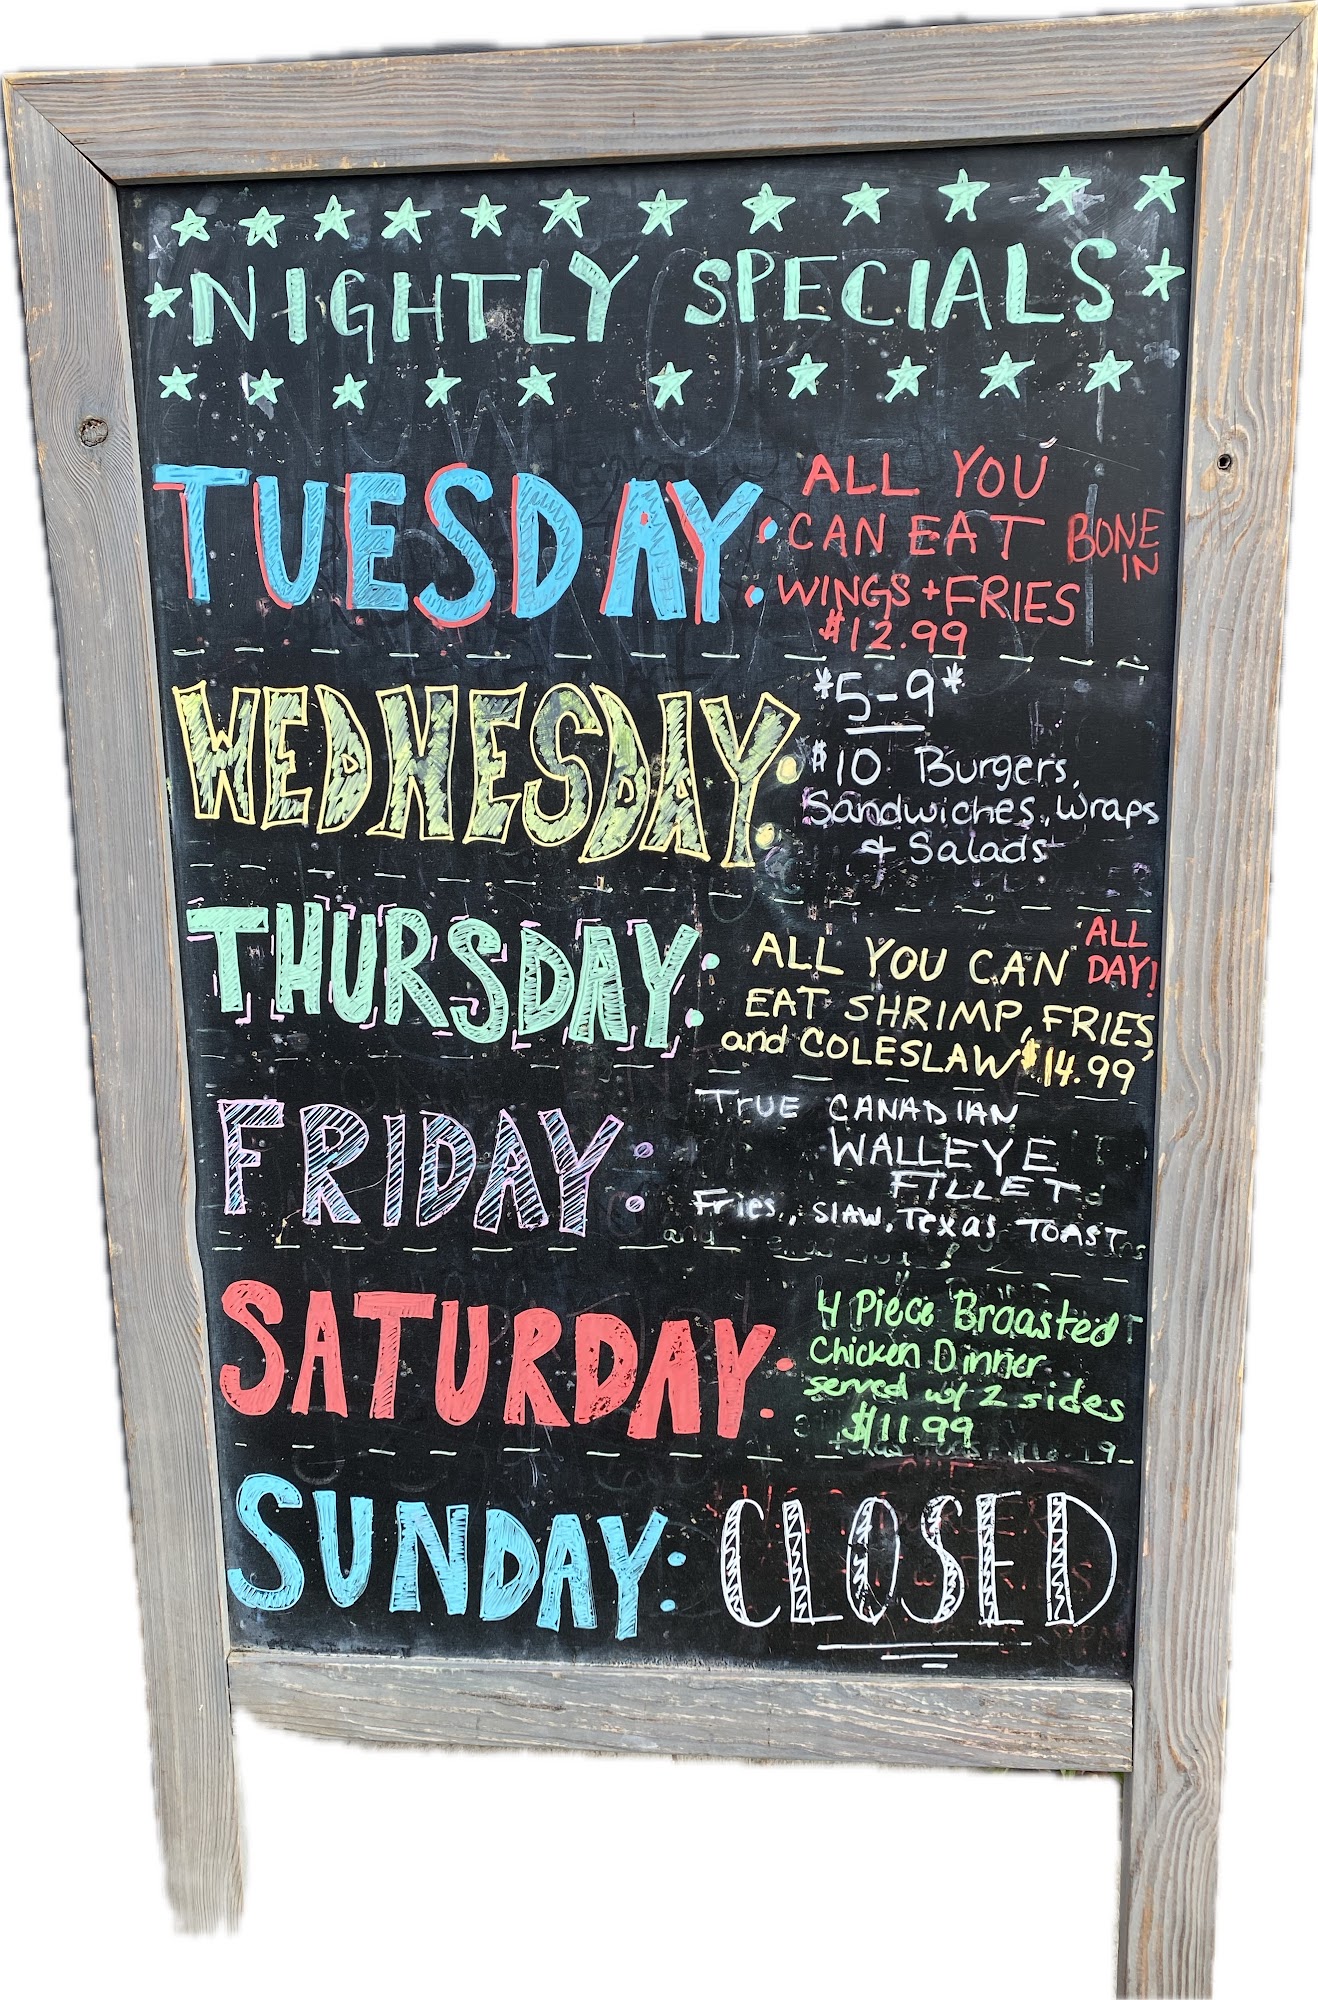 NIGHTLY SPECIALS
TUESDAY:
ALL YOU
CAN EAT
WINGS + FRIES
$12.99
BONE
IN
WEDNESDAY:
*5-9*
$10 Burgers,
Sandwiches, Wraps
+ Salads
THURSDAY:
ALL YOU CAN
EAT SHRIMP, FRIES,
and COLESLAW $14.99
ALL
DAY!
FRIDAY:
TRUE CANADIAN
WALLEYE
FILLET
Fries, SLAW, Texas TOAST
SATURDAY:
4 Piece Broasted
Chicken Dinner
served w/ 2 sides
$11.99
SUNDAY: CLOSED